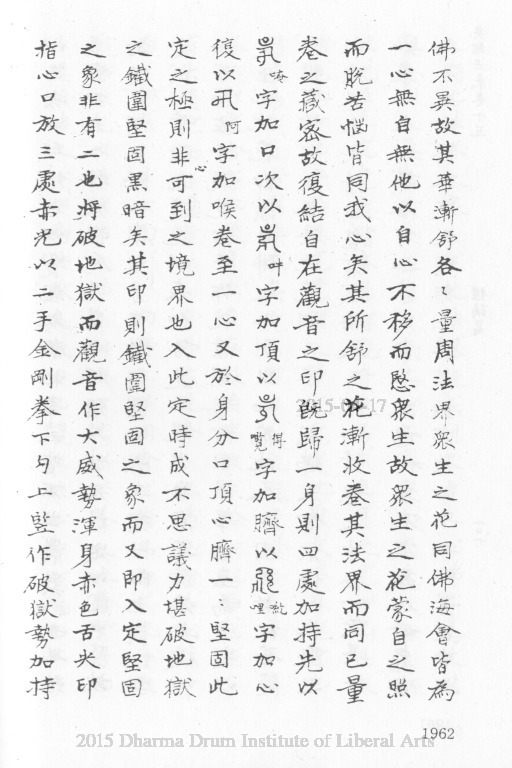 佛不異故其華漸舒各〻量周法界眾生之花同佛海會皆為
一心無自無他以自心不移而愍眾生故眾生之花蒙自之照
而脫苦惱皆同我心矣其所舒之花漸收卷其法界而同己量
卷之藏密故復結自在觀音之印既歸一身則四處加持先以
字加口次以 吽字加頂以 字加臍以 字加心
復以 阿字加喉卷至一心又於身分口頂心臍一〻堅固此
定之極則非心可到之境界也入此定時成不思議力堪破地獄
之鐵圍堅固黑暗矣其印則鐵圍堅固之象而又即入定堅固
之象非有二也將破地獄而觀音作大威勢渾身赤色舌尖印
指心口放三處赤光以二手金剛拳下勾上豎作破獄勢加持
1962
2015-03-17
2015 Dharma Drum Institute of Liberal Arts